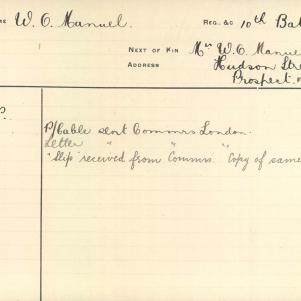 RE W. O. Manuel. REG. &C 10th Bat
NEXT OF KIN Mr W. O. Manue
ADDRESS Hudson Stre
Prospect.
P/Cable sent Commrs London.
Letter " " "
"Slip" received from Commrs. Copy of same